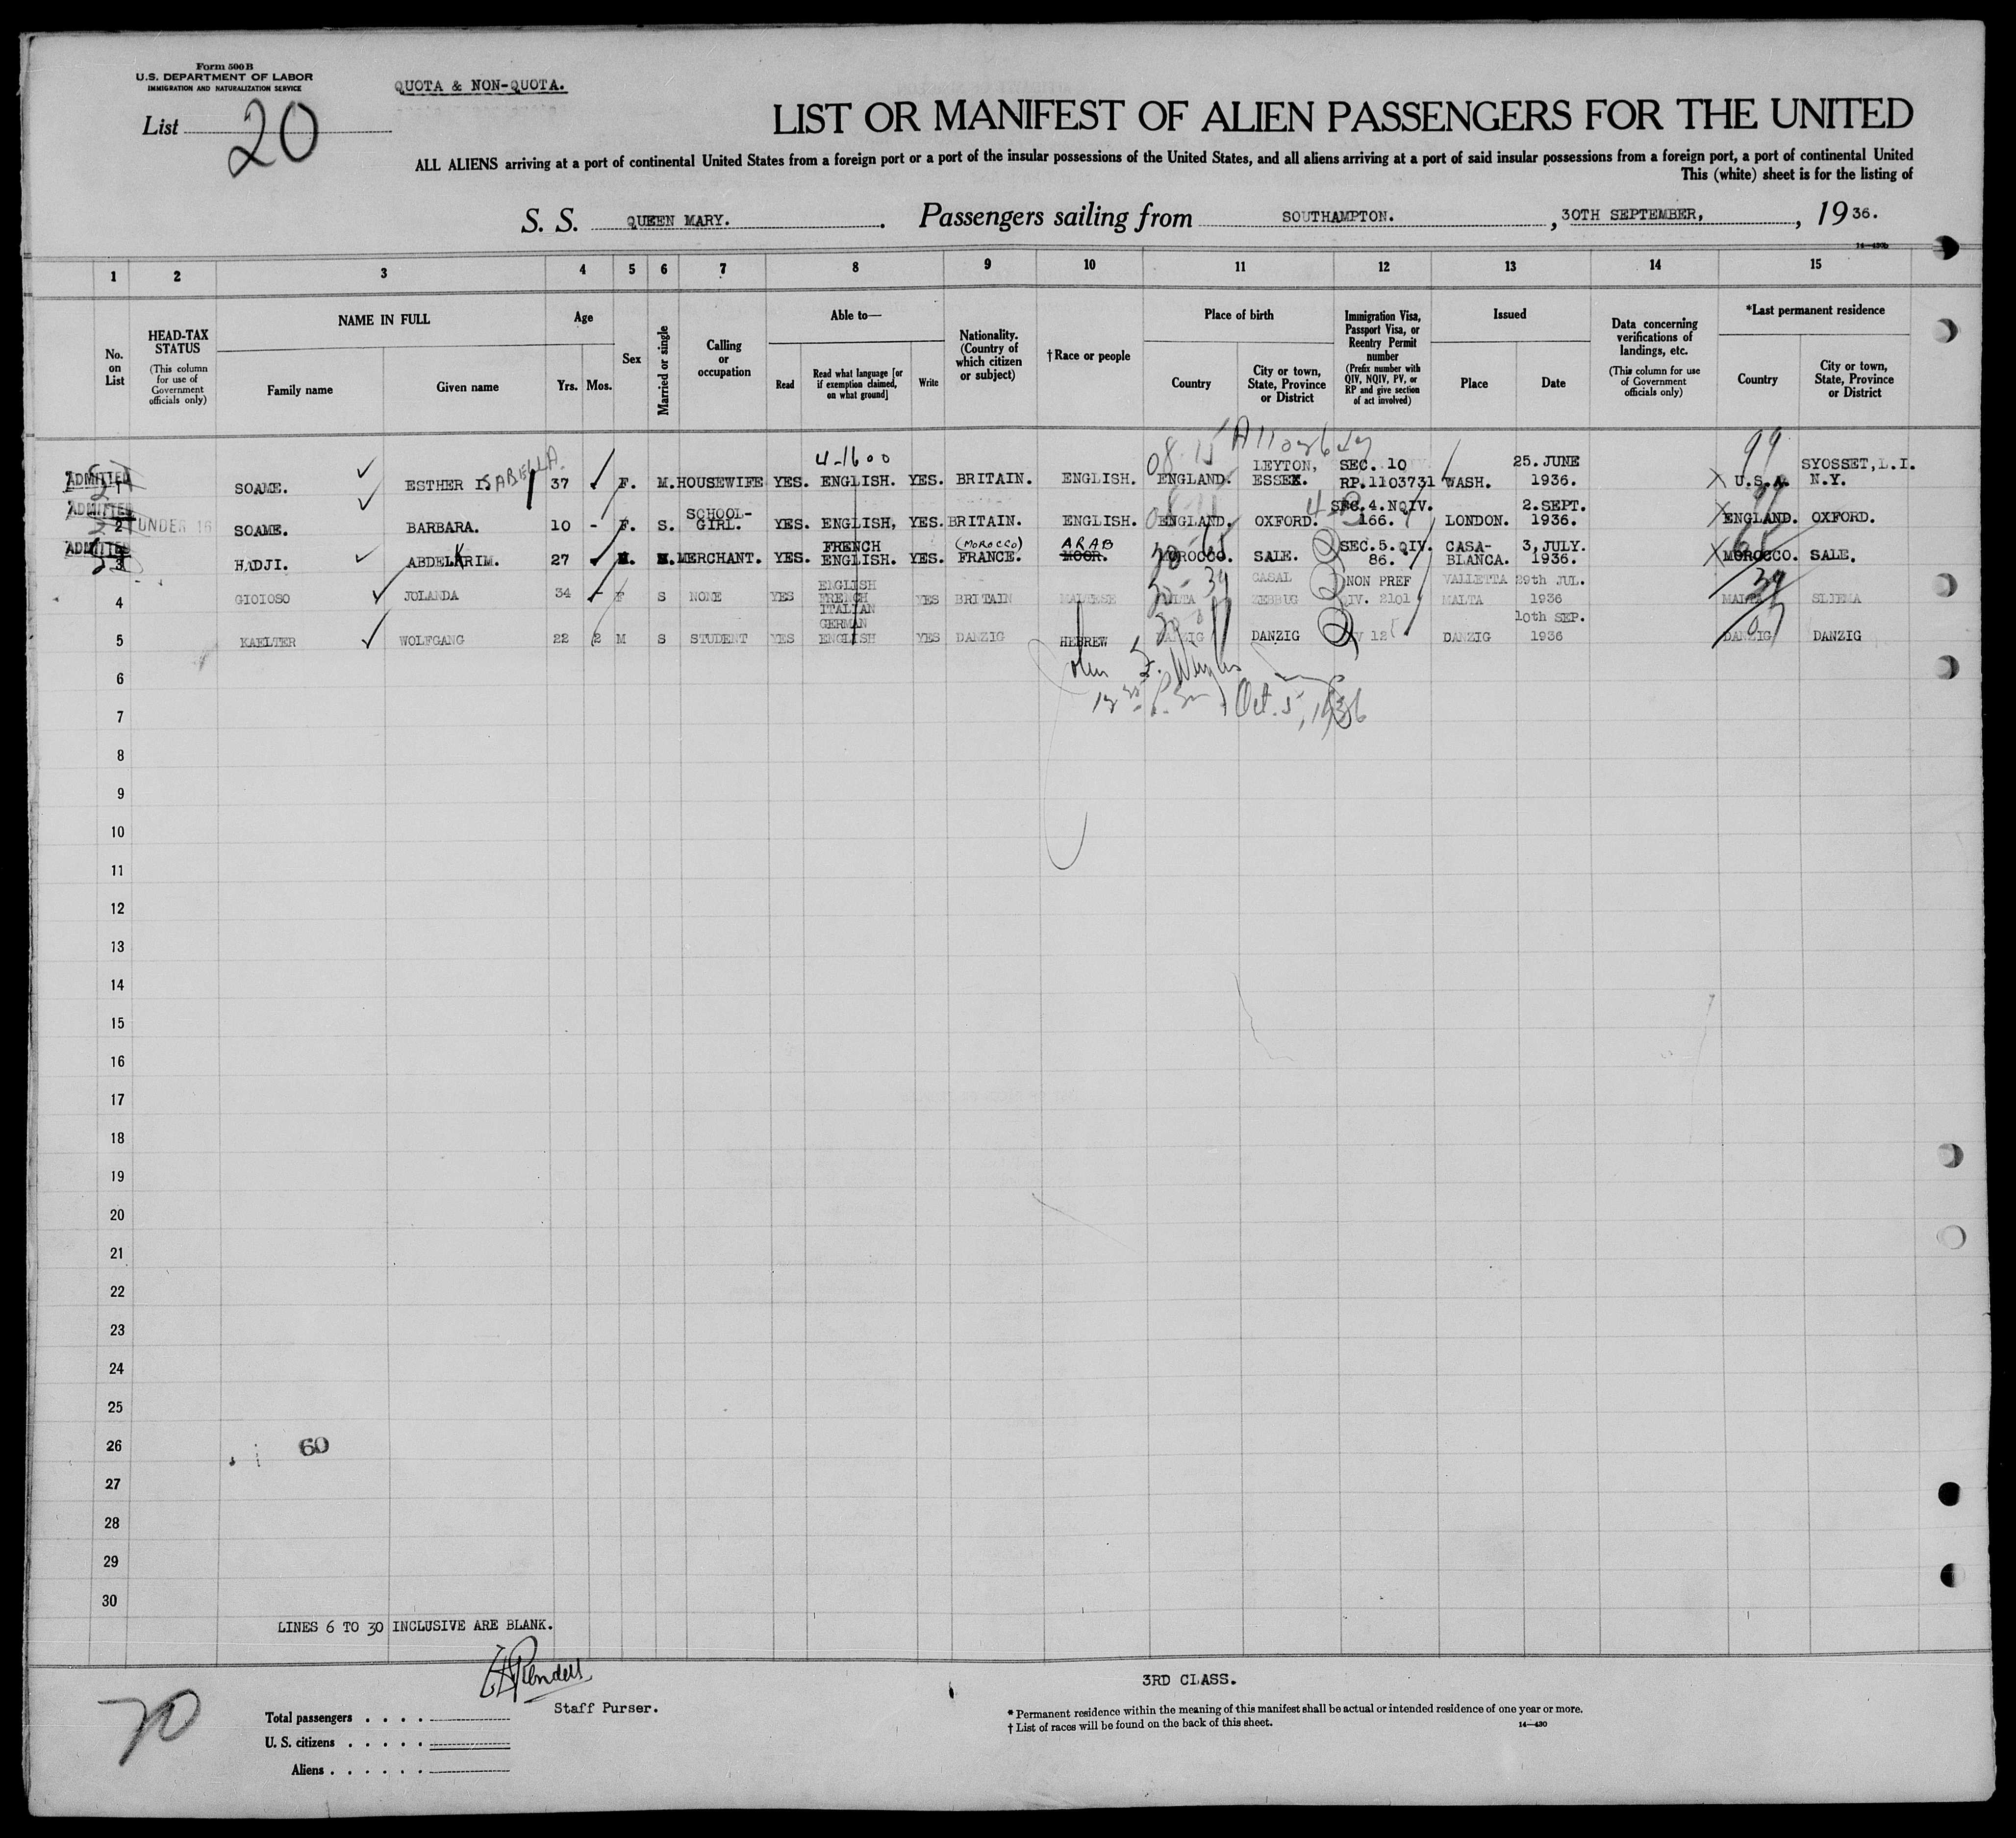 Form 500 B
U.S. DEPARTMENT OF LABOR
IMMIGRATION AND NATURALIZATION SERVICE
QUOTA & NON-QUOTA.
List 20
LIST OR MANIFEST OF ALIEN PASSENGERS FOR THE UNITED
ALL ALIENS arriving at a port of continental United States from a foreign port or a port of the insular possessions of the United States, and all aliens arriving at a port of said insular possessions from a foreign port, a port of continental United
This (white) sheet is for the listing of
S. S. QUEEN MARY. Passengers sailing from SOUTHAMPTON. , 30TH SEPTEMBER, , 1936.
14—430b
1 2 3 4 5 6 7 8 9 10 11 12 13 14 15
No. on List
HEAD-TAX STATUS (This column for use of Government officials only)
NAME IN FULL
Family name Given name
Age
Yrs. Mos.
Sex
Married or single
Calling or occupation
Able to—
Read Read what language [or if exemption claimed, on what ground] Write
Nationality. (Country of which citizen or subject)
†Race or people
Place of birth
Country City or town, State, Province or District
Immigration Visa, Passport Visa, or Reentry Permit number (Prefix number with QIV, NQIV, PV, or RP and give section of act involved)
Issued
Place Date
Data concerning verifications of landings, etc. (This column for use of Government officials only)
*Last permanent residence
Country City or town, State, Province or District
4-1600
08-15
99
ADMITTED 1 SOAME. ESTHER ISABELLA 37 F. M. HOUSEWIFE YES. ENGLISH. YES. BRITAIN. ENGLISH. ENGLAND. LEYTON, ESSEX. SEC. 10 RP.1103731 WASH. 25. JUNE 1936. U.S.A. SYOSSET, L.I. N.Y.
ADMITTED 2 UNDER 16 SOAME. BARBARA. 10 - F. S. SCHOOL-GIRL. YES. ENGLISH, YES. BRITAIN. ENGLISH. ENGLAND. OXFORD. SEC.4.NQIV. 166. LONDON. 2. SEPT. 1936. ENGLAND. OXFORD.
ADMITTED 3 HADJI. ABDELKRIM. 27 M. M. MERCHANT. YES. FRENCH ENGLISH. YES. (MOROCCO) FRANCE. ARAB MOOR. MOROCCO. SALE. SEC.5.QIV. 86. CASA-BLANCA. 3, JULY. 1936. MOROCCO. SALE.
4 GIOIOSO JOLANDA 34 - F S NONE YES ENGLISH FRENCH ITALIAN YES BRITAIN MALTESE MALTA CASAL ZEBBUG NON PREF QIV. 2101 VALLETTA MALTA 29th JUL. 1936 MALTA SLIEMA
5 KAELTER WOLFGANG 22 2 M S STUDENT YES GERMAN ENGLISH YES DANZIG HEBREW DANZIG DANZIG DANZIG 10th SEP. 1936 DANZIG DANZIG
6
Oct. 5, 1936
7
8
9
10
11
12
13
14
15
16
17
18
19
20
21
22
23
24
25
26 60
27
28
29
30
LINES 6 TO 30 INCLUSIVE ARE BLANK.
Staff Purser.
3RD CLASS.
Total passengers . . . .
U. S. citizens . . . . .
Aliens . . . . . .
* Permanent residence within the meaning of this manifest shall be actual or intended residence of one year or more.
† List of races will be found on the back of this sheet.
14—430